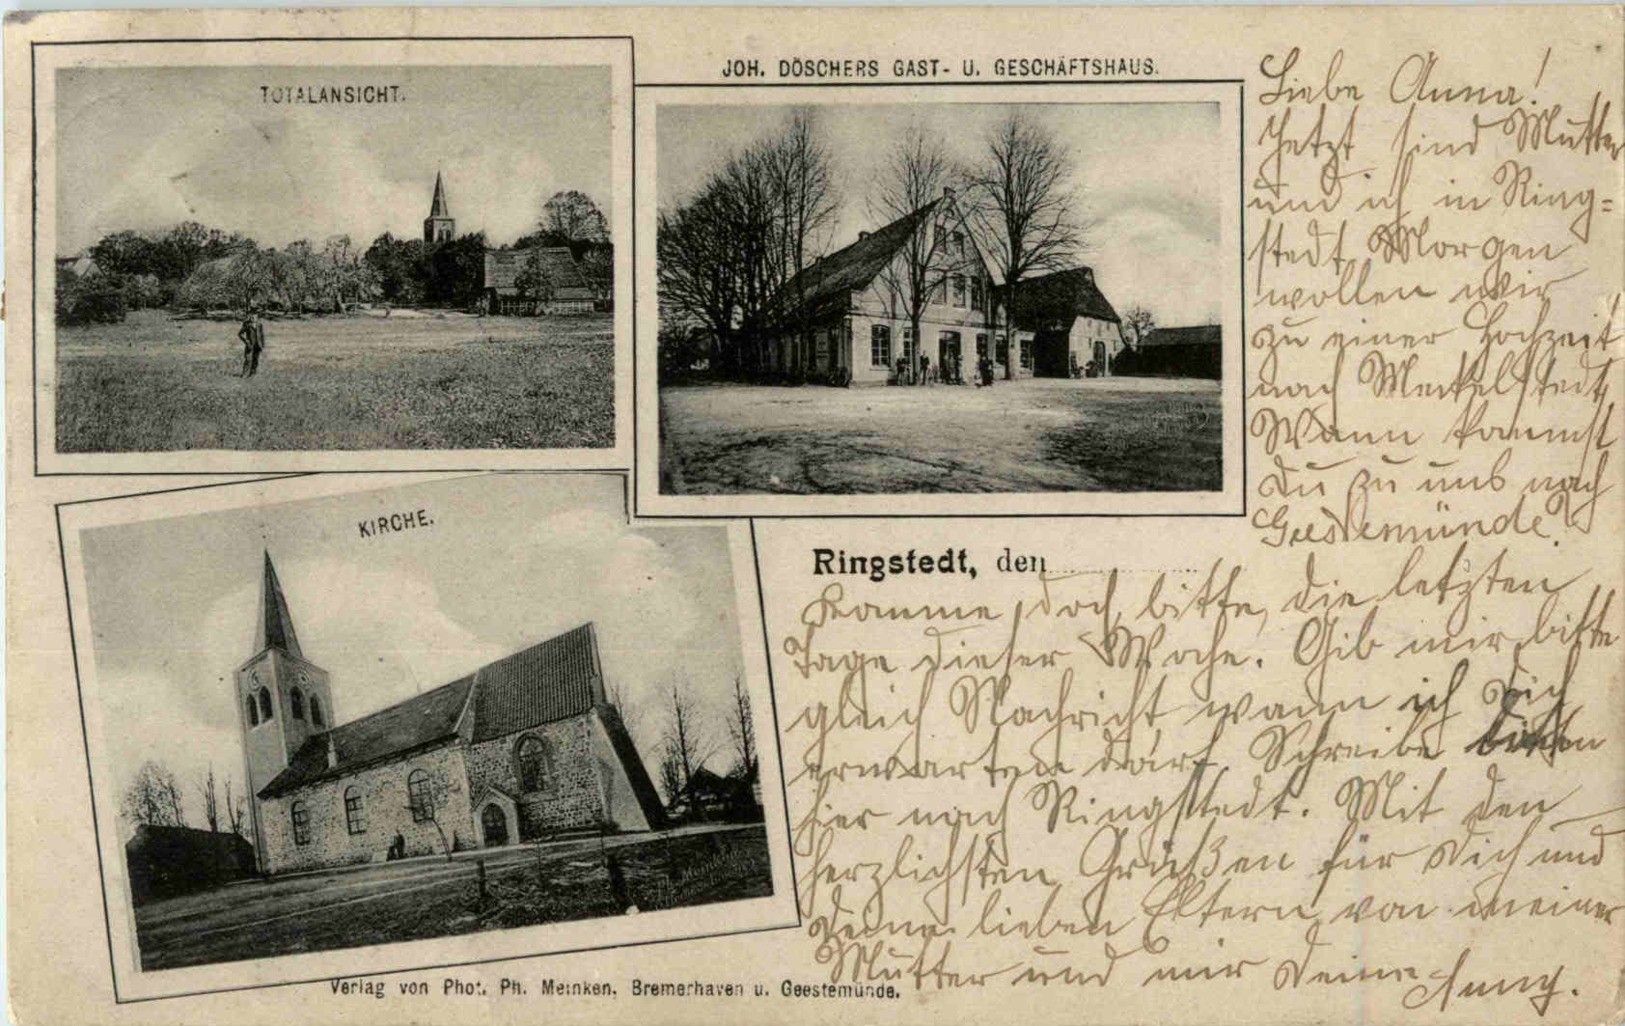 TOTALANSICHT.
JOH. DÖSCHERS GAST- U. GESCHÄFTSHAUS.
KIRCHE.
Liebe Anna!
Jetzt sind Mutter
und ich in Ring-
stedt. Morgen
wollen wir
zu einer Hochzeit
nach Meckelstedt,
Wann kommst
Du zu uns nach
Geestemünde?
Ringstedt, den
Komme doch, bitte, die letzten
Tage dieser Woche. Gib mir bitte
gleich Nachricht wann ich Dich
erwarten darf. Schreibe
hier nach Ringstedt. Mit den
herzlichsten Grüßen für Dich und
Deine lieben Eltern von meiner
Mutter und mir Deine
Verlag von Phot. Ph. Meinken, Bremerhaven u. Geestemünde.